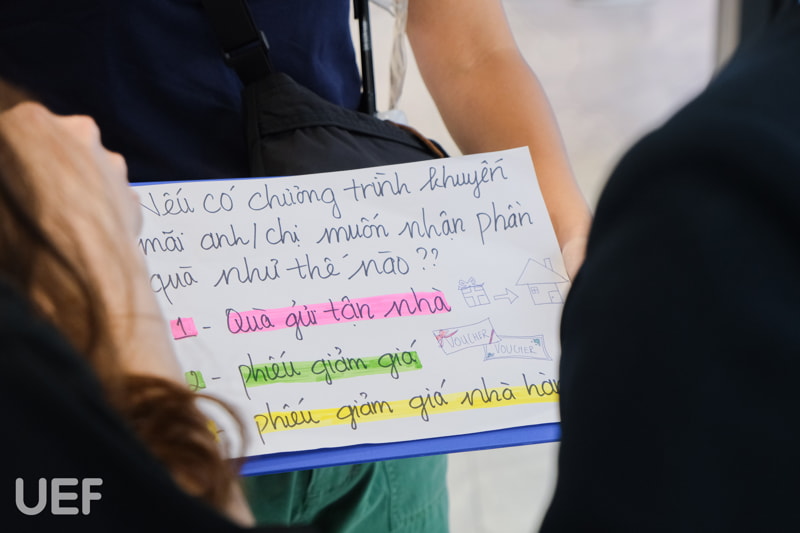 Nếu có chương trình khuyến
mãi anh/chị muốn nhận phần
quà như thế nào??
1 - Quà gửi tận nhà
VOUCHER
VOUCHER
2 - phiếu giảm giá
phiếu giảm giá nhà hàn
UEF